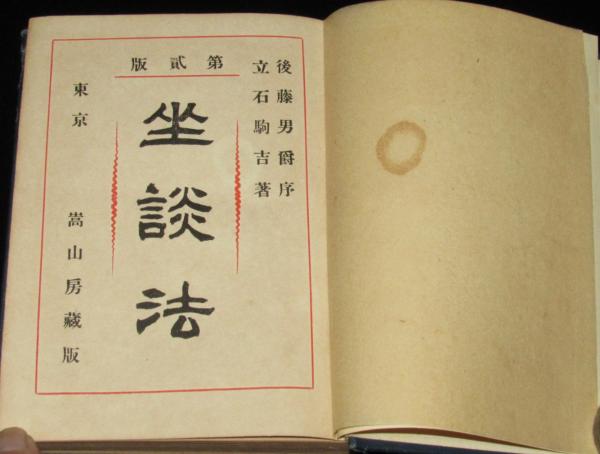 第貳版
後藤男爵序
立石駒吉著
坐談法
東京 嵩山房藏版